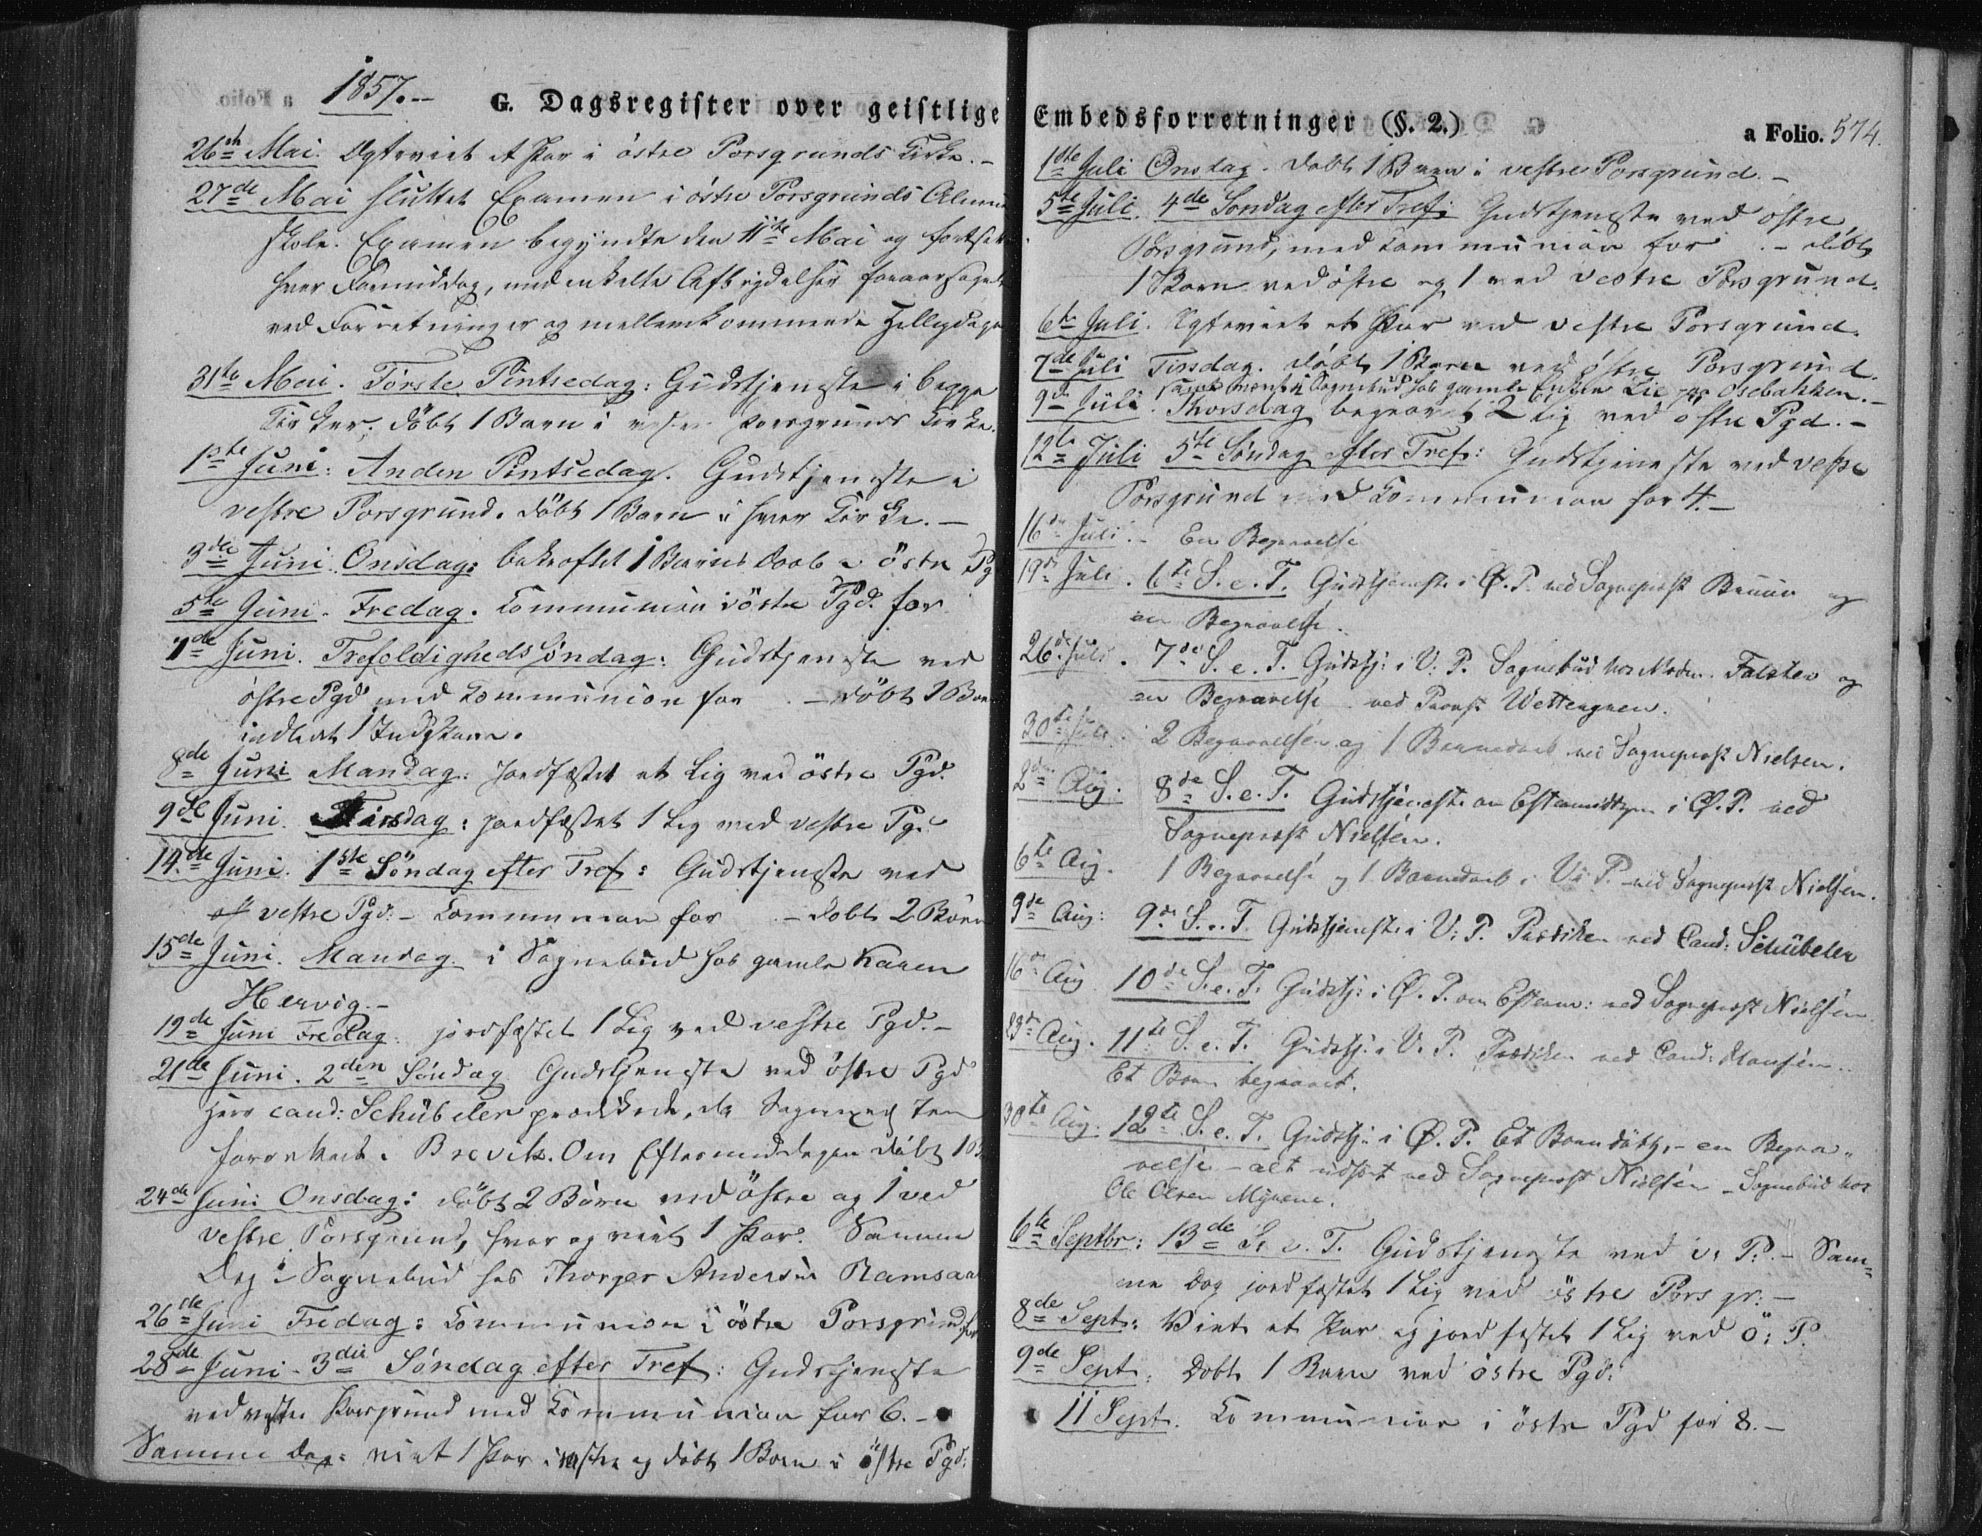 1857.-
G. Dagsregister over geistlige
26de Mai. Egteviet et Par i østre Porsgrunds Kirke. -
27de Mai sluttet Examen i østre Porsgrunds Almue
skole. Examen begyndte den 11te Mai og fortsat
hver Formiddag, med enkelte Afbrydelser foraarsaget
ved Forretninger og mellemkommende Helligdage
31te Mai. Første Pintsedag: Gudstjeneste i begge
Kirker, døbt 1 Barn i vestre Porsgrunds Kirke.
1ste Juni: Anden Pintsedag. Gudstjeneste i
vestre Porsgrund. døbt 1 Barn i hver Kirke. -
3die Juni Onsdag: bekræftet 1 Barns Daab i östre Pg
5te Juni. Fredag. Communion i østre Pgd. for
7de Juni. Trefoldigheds Søndag: Gudstjeneste ved
østre Pgd med Communion for . - døbt 1 Barn
indledt 1
8de Juni Mandag: Jordfæstet et Lig ved østre Pgd.
9de Juni. Tirsdag: jordfæstet 1 Lig ved vestre Pg.
14de Juni. 1ste Söndag efter Tref: Gudstjeneste ved
vestre Pgd. - Communion for - døbt 2 Börn
15de Juni. Mandag i Sognebud hos gamle Karen
Hervig. -
19de Juni Fredag. jordfæstet 1 Lig ved vestre Pgd. -
21de Juni. 2den Söndag Gudstjeneste ved østre Pgd
Herr cand: Schübeler prædikede, da Sognepræsten
forrettede i Brevik. Om Eftermiddagen døbt 1 B
24de Juni Onsdag: døbt 2 Börn ved østre og 1 ved
vestre Porsgrund, hvor og viet 1 Par. Samme
Dag i Sognebud hos Thorger Andersen Ramsaa
26de Juni Fredag: Communion i østre Porsgrund for
28de Juni - 3die Söndag efter Tref: Gudstjeneste
ved vestre Porsgrund med Communion for 6. -
Samme Dag: viet 1 Par i vestre og døbt 1 Barn i østre Pgd:
Embedsforretninger (§. 2.)
a Folio. 574.
1ste Juli Onsdag. døbt 1 Barn i vestre Porsgrund. -
5te Juli. 4de Søndag efter Tref: Gudstjeneste ved østre
Porsgrund, med Communion for . - døbt
1 Barn ved østre og 1 ved vestre Porsgrund.
6te Juli. Egteviet et Par ved vestre Porsgrund.
7de Juli Tirsdag. døbt 1 Barn ved østre Porsgrund.
Sognebud hos gamle Enken Lie paa Osebakken. -
9de Juli. Thorsdag begravet 2 Lig ved østre Pgd. -
12te Juli 5te Søndag efter Tref: Gudstjeneste ved vestre
Porsgrund med Communion for 4. -
16de Juli. - En Begravelse
19de Juli. 6te S. e. T. Gudstjeneste i Ø. P. ved Sognepræst Bruun og
en Begravelse.
26de Juli. 7de S. e. T. Gudstj: i V. P. Sognebud hos Madm. Falster og
en Begravelse ved Provst Wettergreen.
30te Juli. 2 Begravelser og 1 Barnedaab ved Sognepræst Nielsen.
2den Aug. 8de S. e. T. Gudstjeneste om Eftermiddagen i Ø. P. ved
Sognepræst Nielsen.
6te Aug. 1 Begravelse og 1 Barnedaab i V. P. ved Sognepræst Nielsen.
9de Aug: 9de S. e. T. Gudstjeneste i V. P. Prædiken ved Cand: Schübeler
16de Aug 10de S. e. T. Gudstj: i Ø. P. om Efterm: ved Sognepræst Nielsen.
23de Aug. 11te S. e. T. Gudstj: i V. P. Prædiken ved Cand:
Et Barn begravet.
30te Aug: 12te S. e. T. Gudstj: i Ø. P. Et Barn døbt, - en Begra-
velse - alt udført ved Sognepræst Nielsen - Sognebud hos
Ole Olsen Myrene.
6te Septbr: 13de S. e. T. Gudstjeneste ved v. P. - Sam-
me Dag jordfæstet 1 Lig ved östre Porsgr: -
8de Sept: Viet et Par og jordfæstet 1 Lig ved ö: P.
9de Sept. døbt 1 Barn ved østre Pgd:
11 Sept. Communion i östre Pgd for 8. -